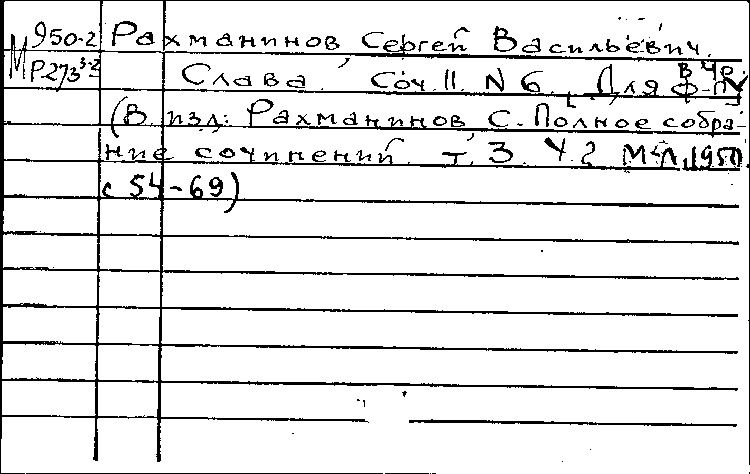 М 950-2 Рахманинов Сергей Васильевич.
Р273 3-2 Слава. Соч. 11. N 6. [Для ф-п в 4 р]
(В изд: Рахманинов С. Полное собра-
ние сочинений. т. 3. Ч. 2 М-Л, 1950.
с 54-69)